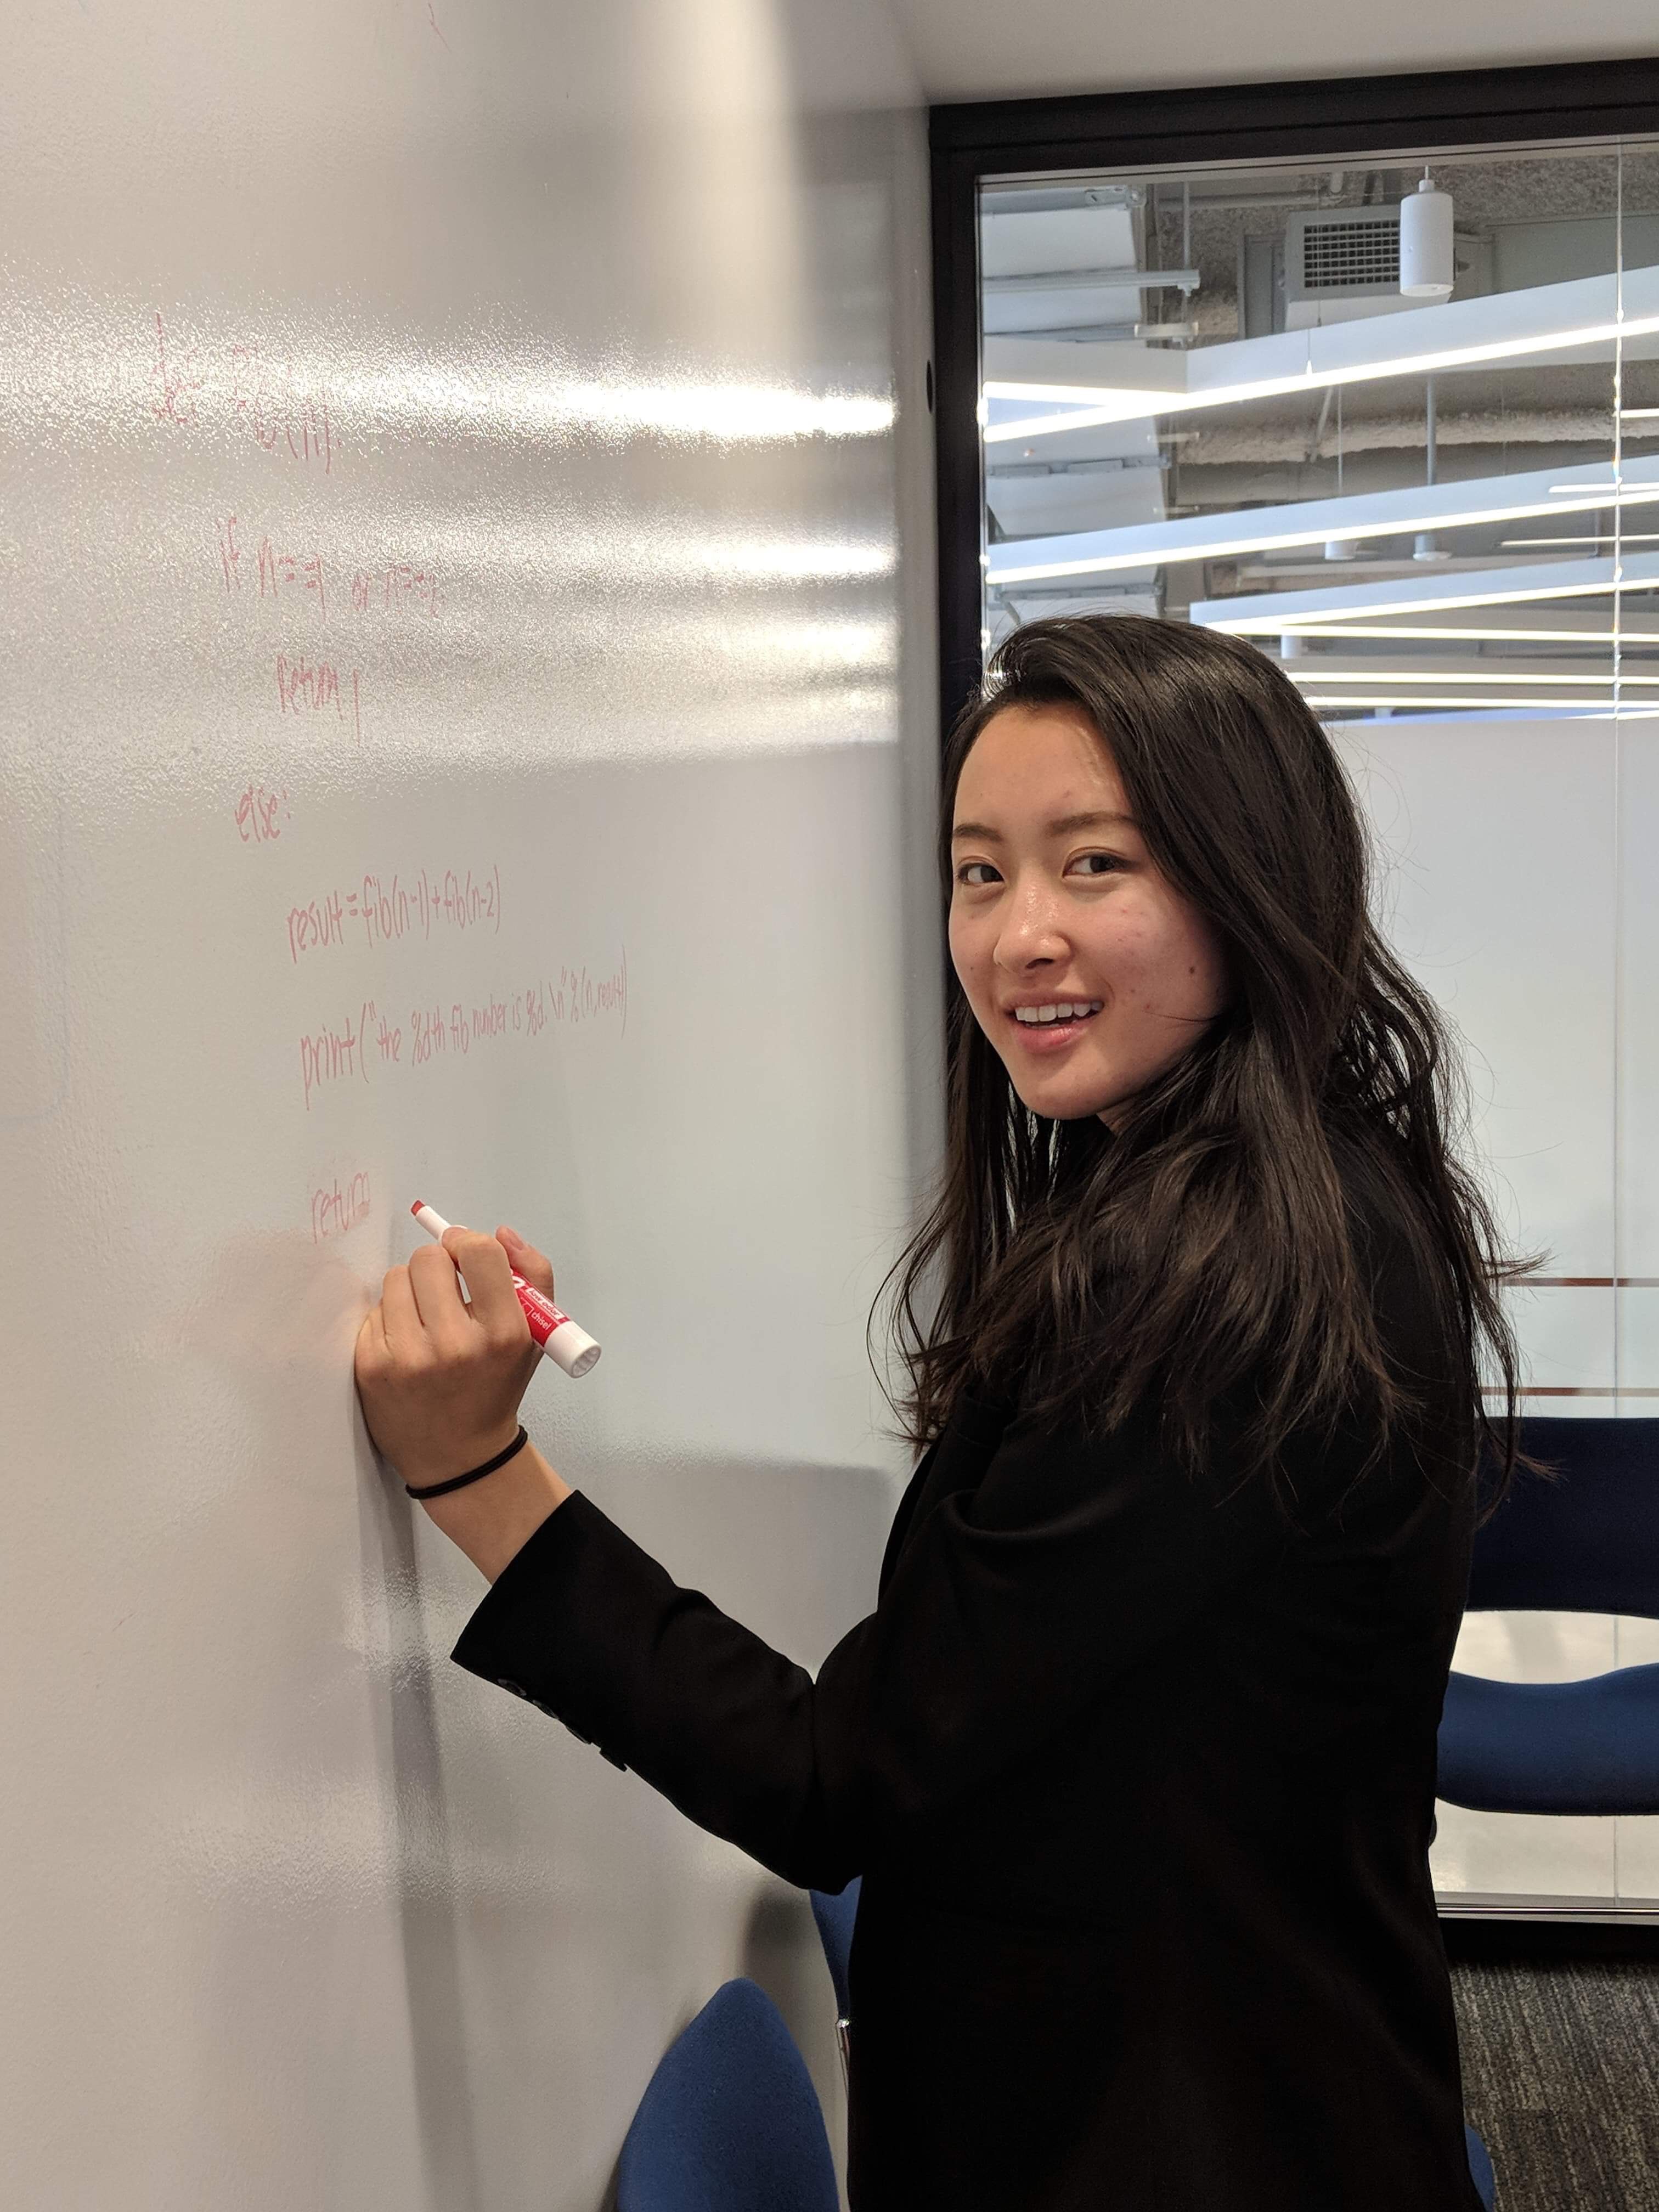 def fib(n):
if n==1 or n==2:
return 1
else:
result=fib(n-1)+fib(n-2)
print("the %dth fib number is %d.\n"%(n,result)
return
chisel